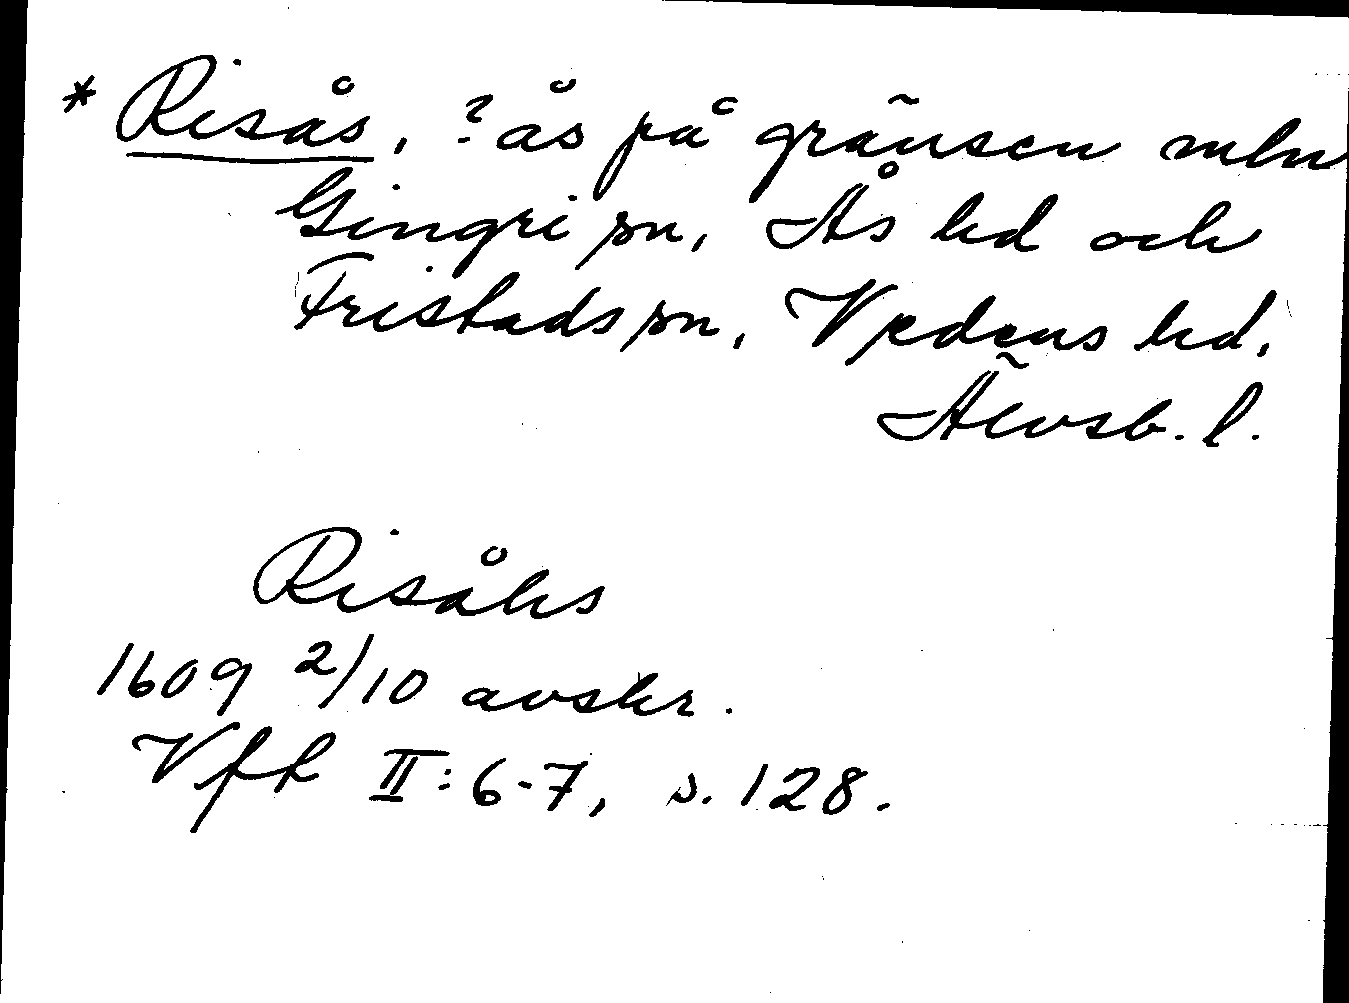 * Risås, ? ås på gränsen mln
Gingri sn, Ås hd och
Fristads sn, Vedens hd,
Älvsb. l.
Risåhs
1609 2/10 avskr.
Vfh II: 6-7, s. 128.